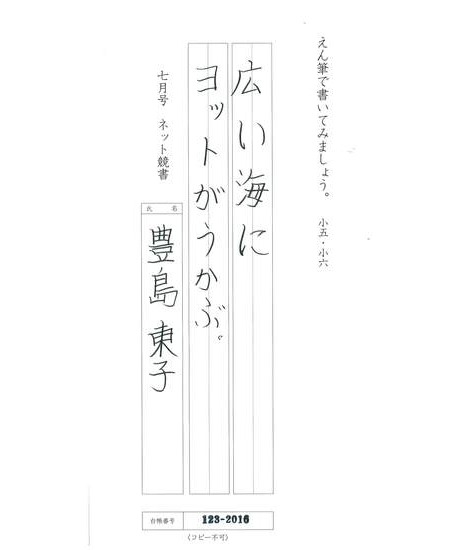 えん筆で書いてみましょう。 小五・小六
広い海に
ヨットがうかぶ。
七月号 ネット競書
氏名
豊島東子
台帳番号 123-2016
〈コピー不可〉